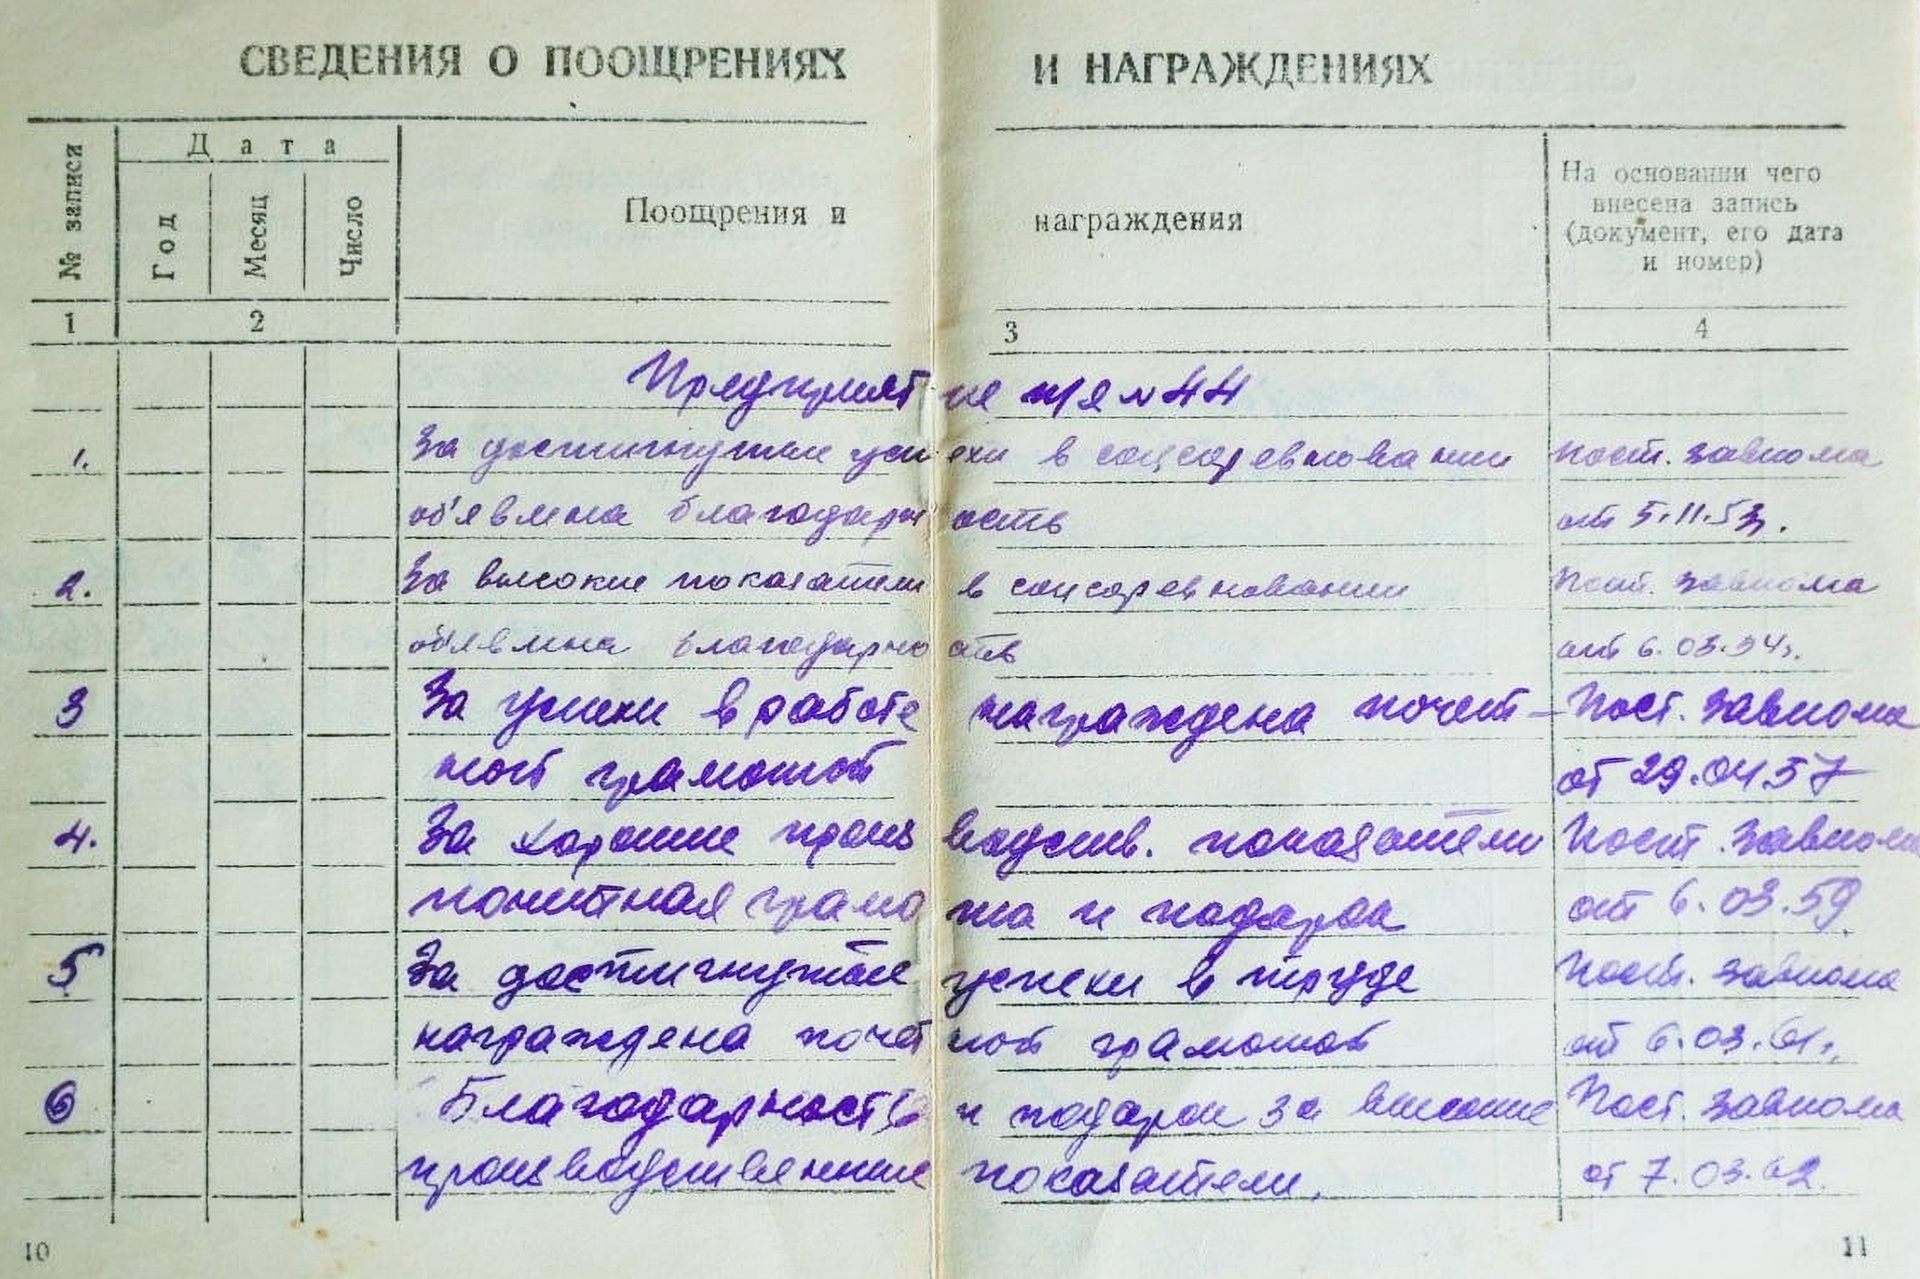 СВЕДЕНИЯ О ПООЩРЕНИЯХ И НАГРАЖДЕНИЯХ
№ записи
Дата
Год
Месяц
Число
Поощрения и награждения
На основании чего
внесена запись
(документ, его дата
и номер)
1 2 3 4
Предприятие п/я №44
1. За достигнутые успехи в соцсоревновании Пост. завкома
об'явлена благодарность от 5.11.53г.
2. За высокие показатели в соцсоревновании Пост. завкома
об'явлена благодарность от 6.03.54г.
3 За успехи в работе награждена почет- Пост. завкома
ной грамотой от 29.04 57
4. За хорошие производств. показатели Пост. завкома
почетная грамота и подарок от 6.03.59
5 За достигнутые успехи в труде Пост. завкома
награждена почетной грамотой от 6.03.61г.
6 Благодарность и подарок за высокие Пост. завкома
производственные показатели. от 7.03.62.
10
11